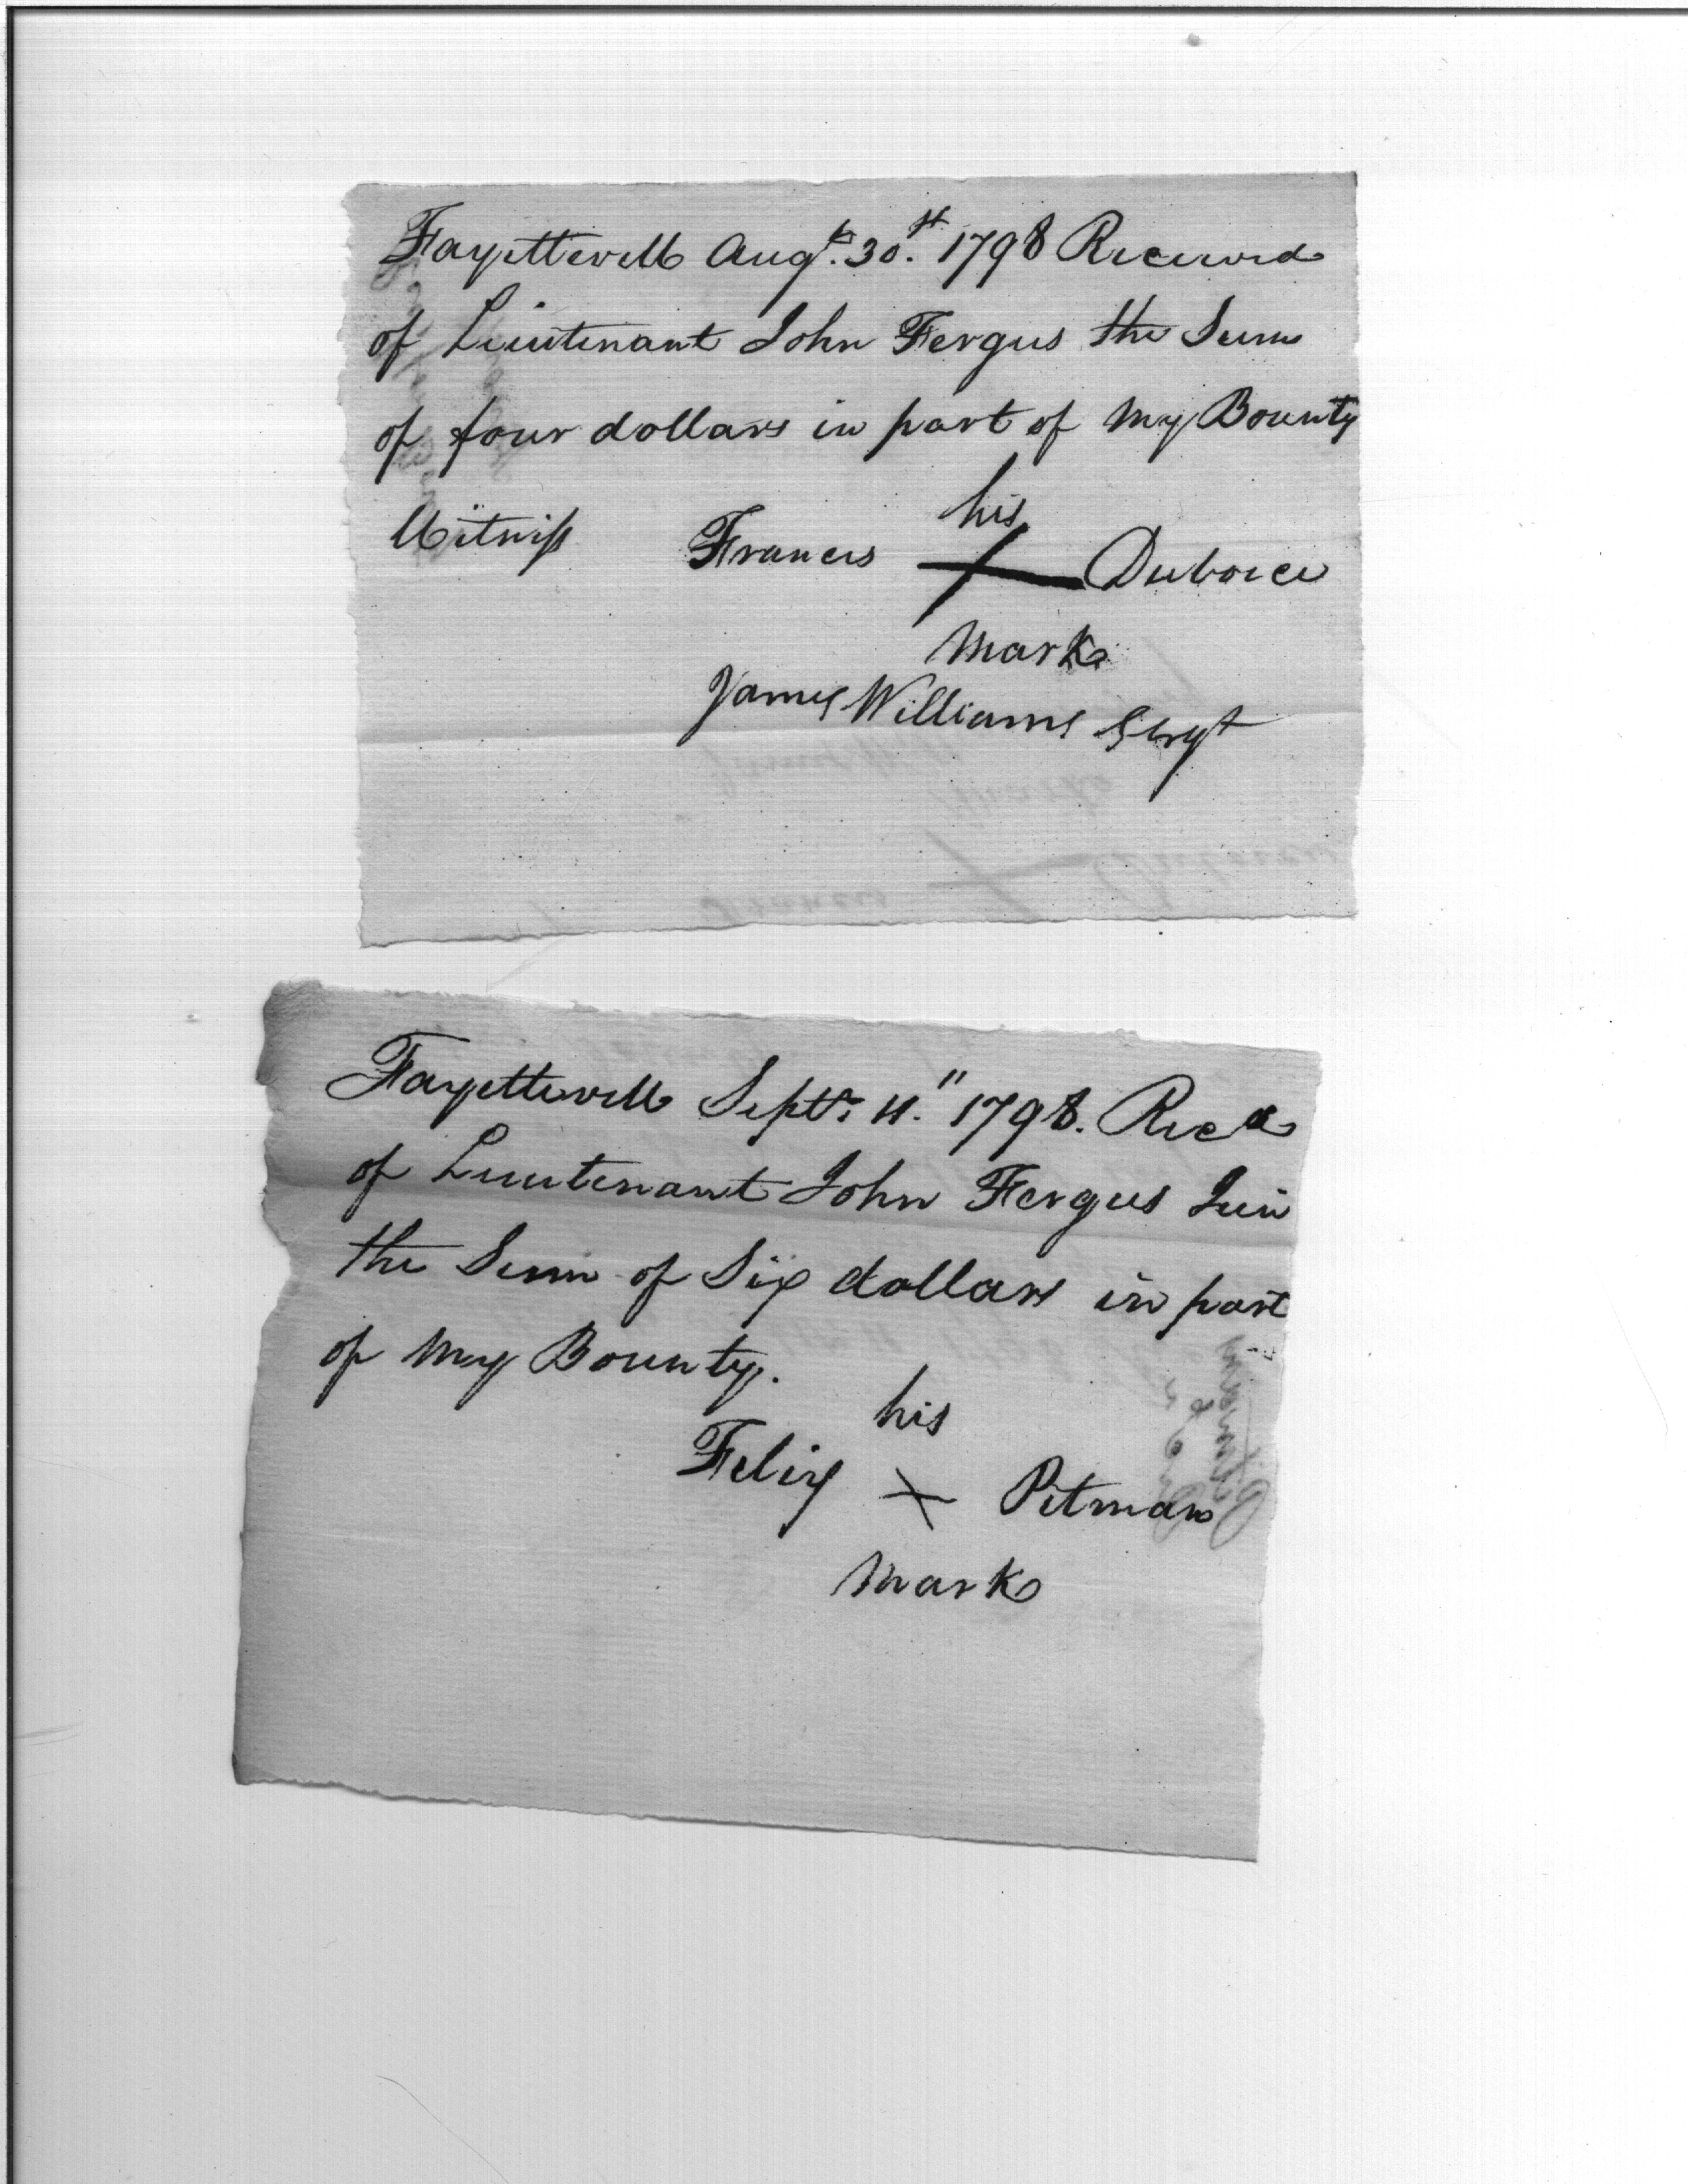 Fayettevill Augt. 30.st 1798 Received
of Lieutenant John Fergus the Sum
of four dollars in part of my Bounty
Witness Francis his X Duboice
Mark
James Williams Sergt
Fayettevill Septr. 4." 1798. Recd
of Lieutenant John Fergus Jun
the Sum of Six dollars in part
of my Bounty.
his
Felix X Pitman
Mark